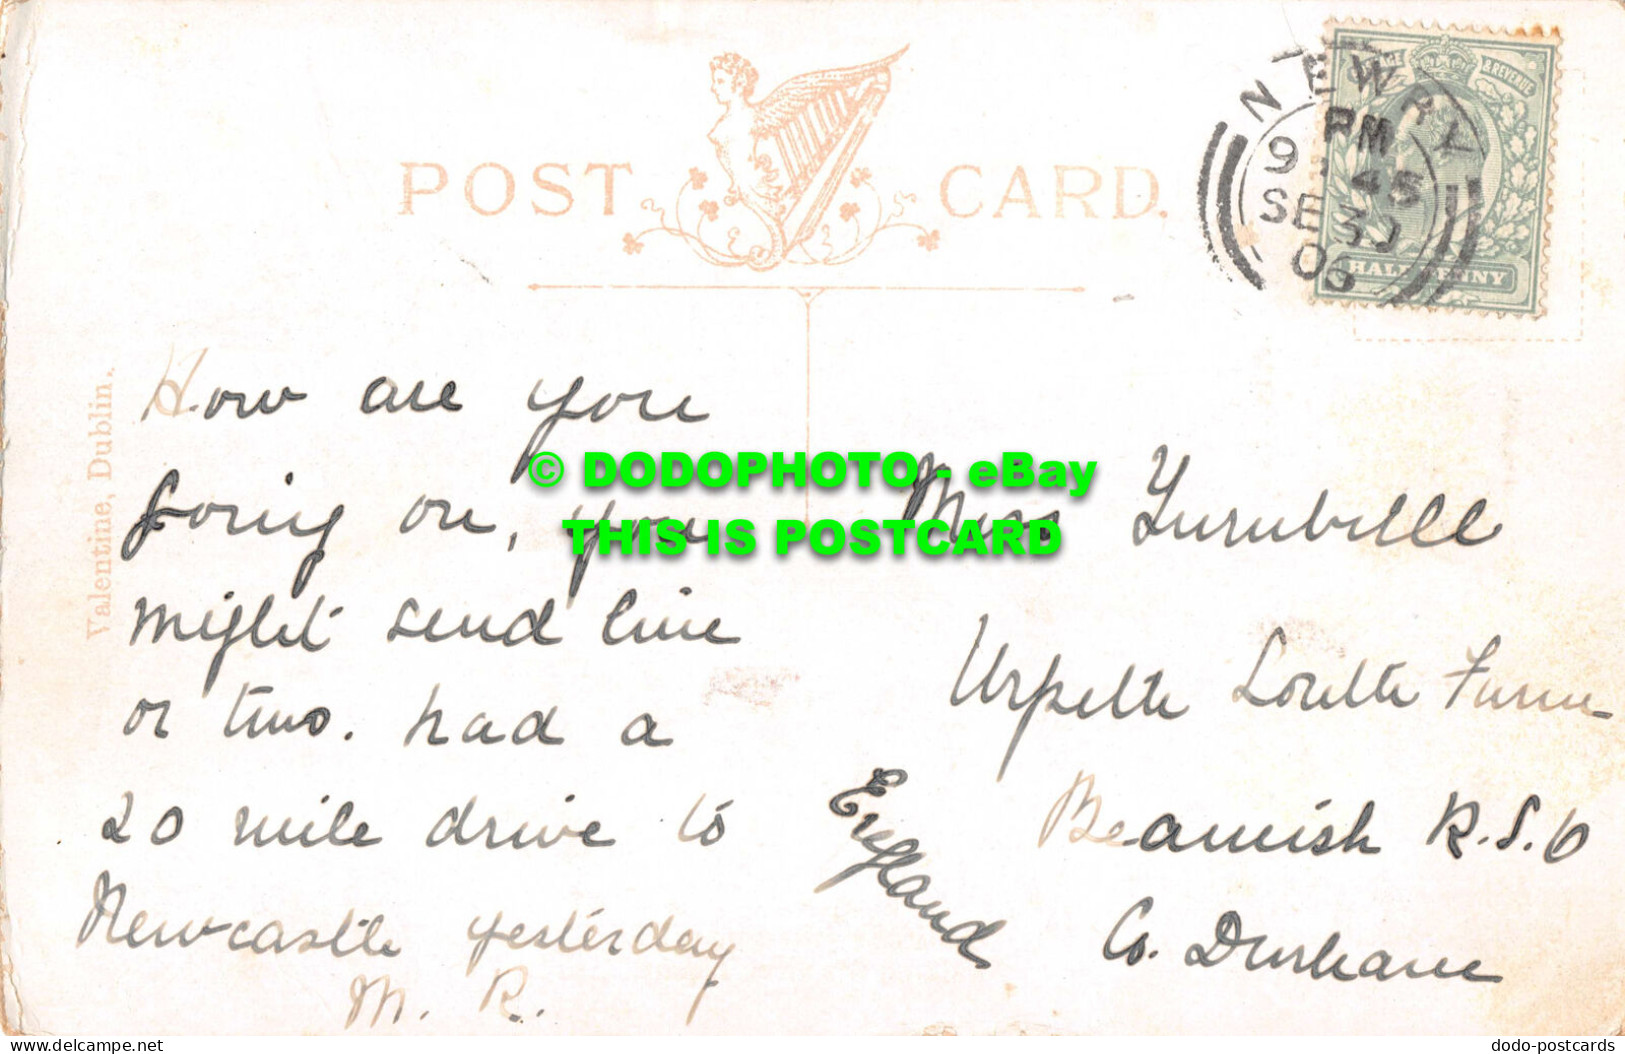 POST CARD.
NEWRY
PM
9 45
SE 30
06
POSTAGE & REVENUE
HALF PENNY
Valentine, Dublin.
How are you
going on, you
might send line
or two. had a
20 mile drive to
Newcastle yesterday
M. R.
Miss Turnbull
Urpeth Farm
Beamish R.S.O
Co. Durham
England
© DODOPHOTO - eBay
THIS IS POSTCARD
www.delcampe.net
dodo-postcards